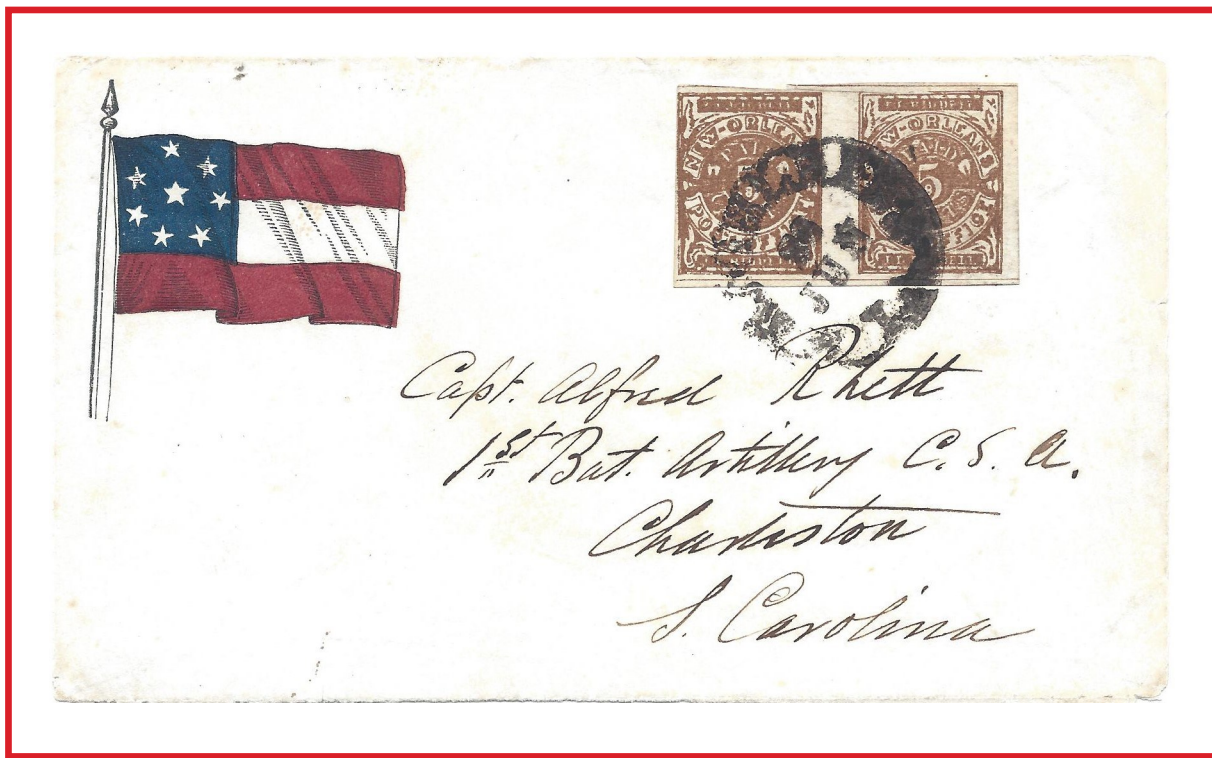 NEW-ORLEANS
PAID
5
POST OFFICE
NEW-ORLEANS
PAID
5
POST OFFICE
Capt. Alfred Rhett
1st Bat. Artillery C. S. A.
Charleston
S. Carolina